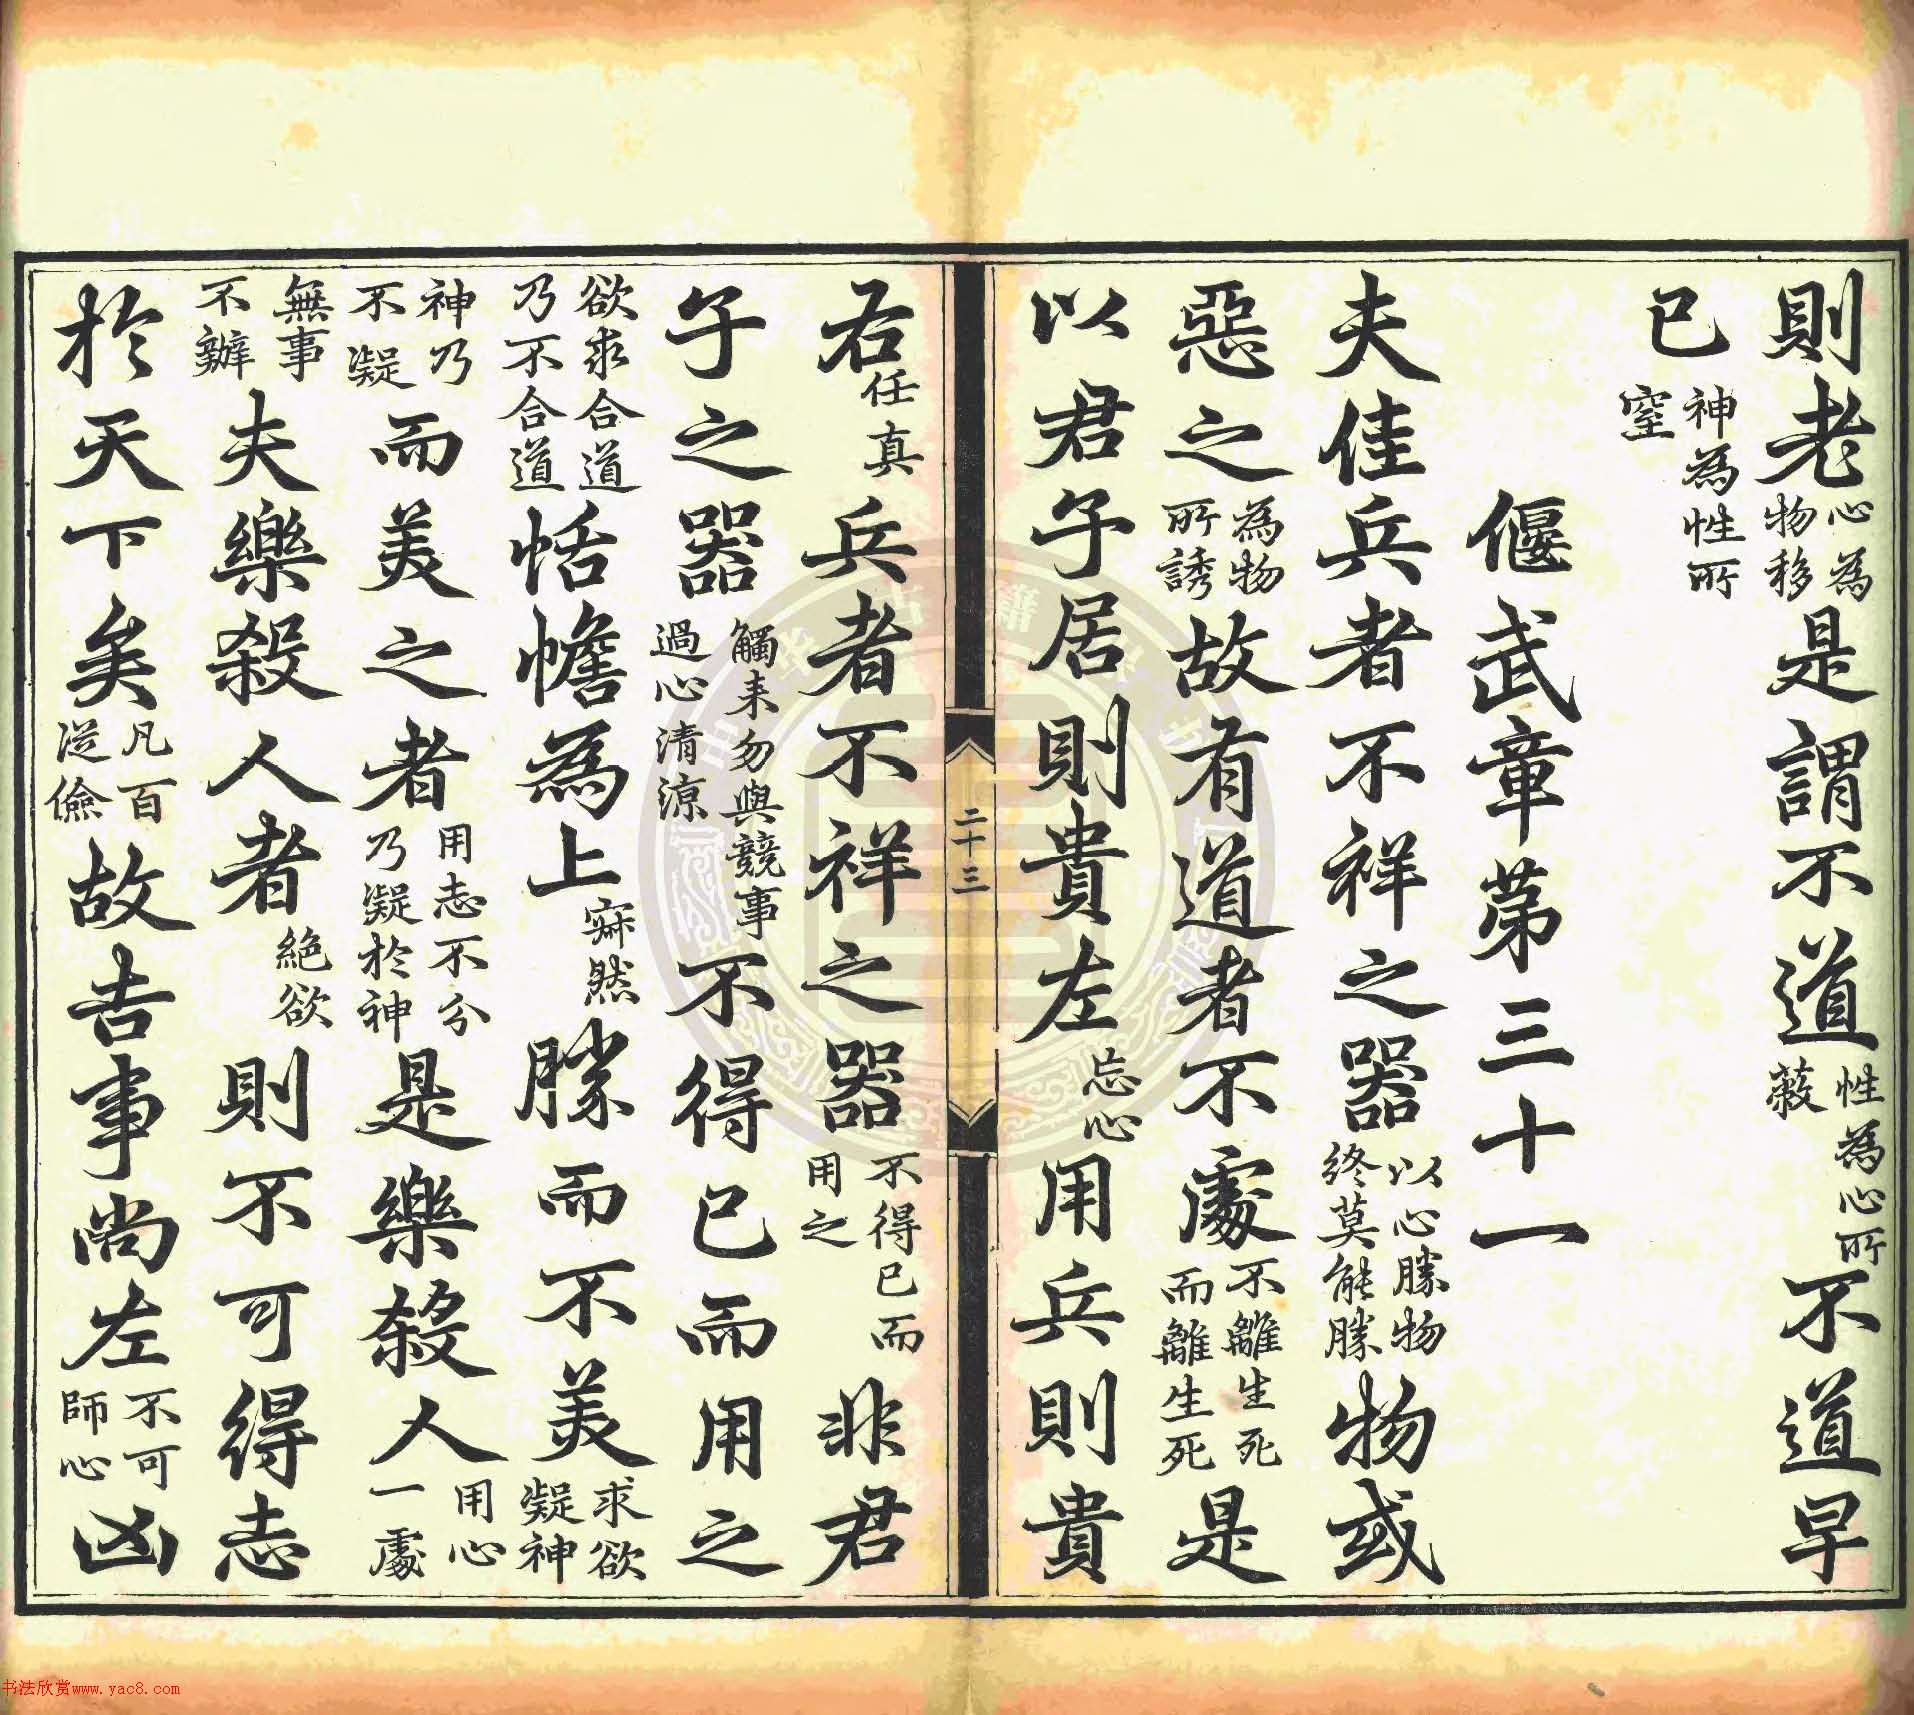 則老心為物移是謂不道性為心所蔽不道早
已神為性所窒
偃武章第三十一
夫佳兵者不祥之器以心勝物終莫能勝物或
惡之為物所誘故有道者不處不離生死而離生死是
以君子居則貴左忘心用兵則貴
二十三
右任真兵者不祥之器不得已而用之非君
子之器觸来勿與競事過心清涼不得已而用之
恬憺為上寂然勝而不美求欲凝神
欲求合道乃不合道
而美之者用志不分乃凝於神是樂殺人用心一處
神乃不凝
夫樂殺人者絕欲則不可得志
無事不辦
於天下矣凡百從儉故吉事尚左不可師心凶
书法欣赏www.yac8.com